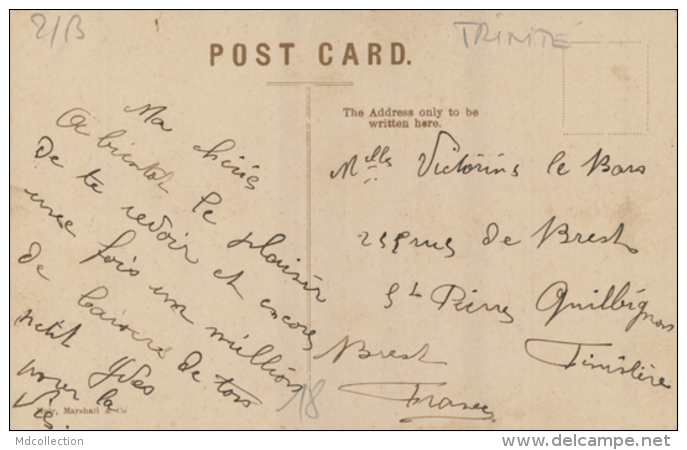 2/B
TRINITÉ
POST CARD.
The Address only to be
written here.
Ma chérie
A bientot le plaisir
de te revoir et encore
une fois un million
de baisers de ton
petit Yves
pour la
vie.
Melle Victorine le Bars
rue de Brest
St Pierre Quilbignon
Brest Finistère
France
18
Muir, Marshall & Co
Mdcollection
delcampe.net